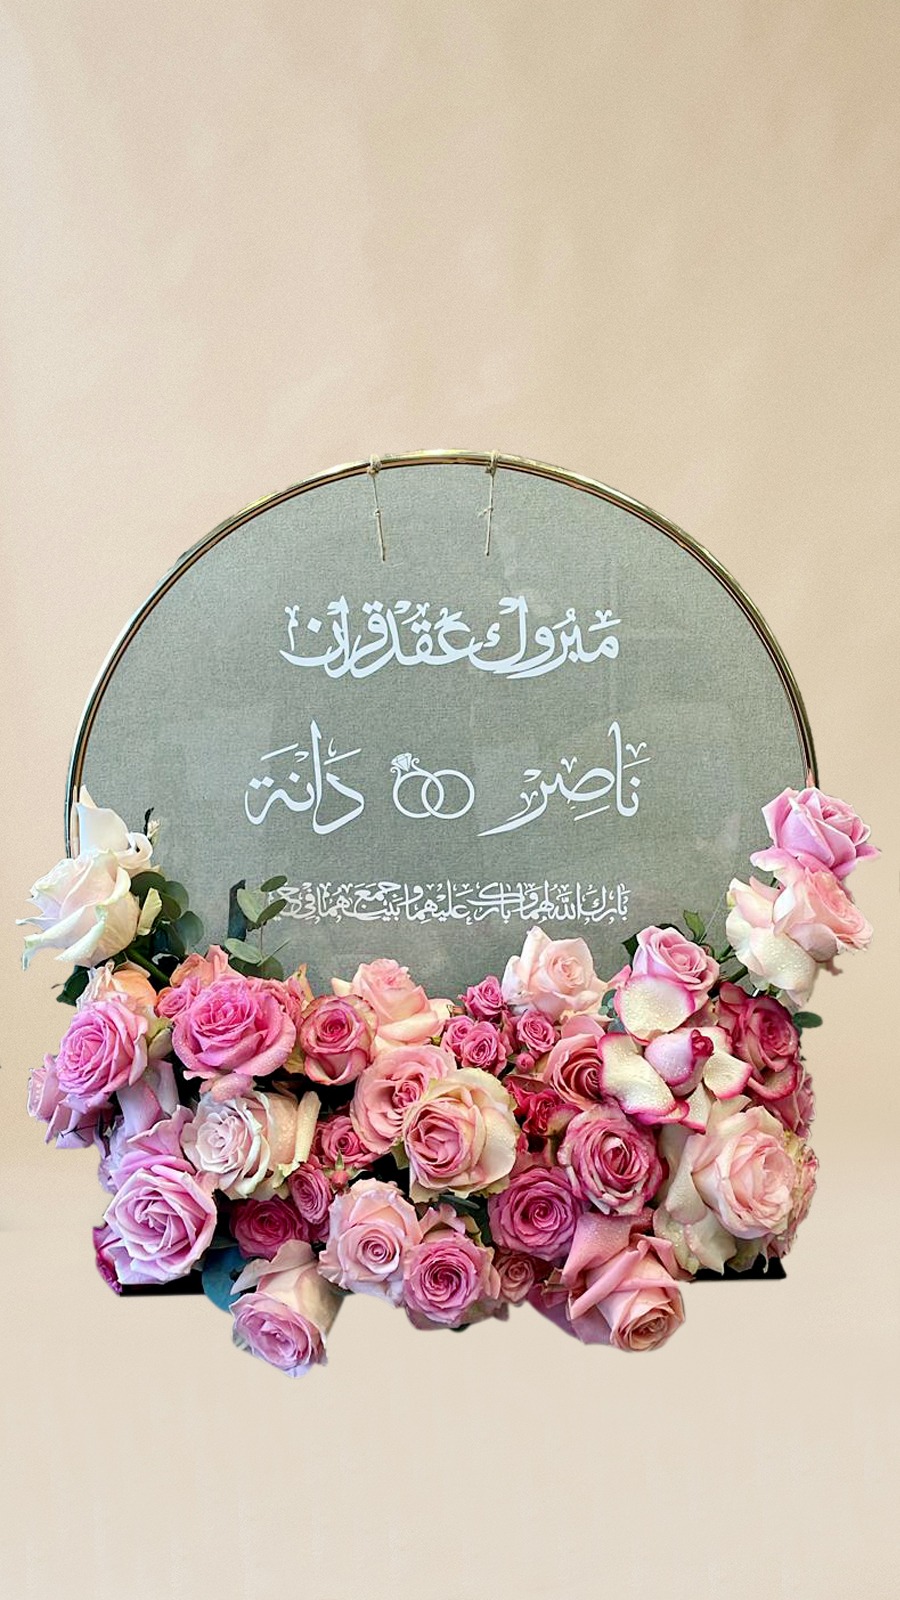 مبروك عقد قران
ناصر دانة
بارك الله لهما وبارك عليهما وجمع بينهما في